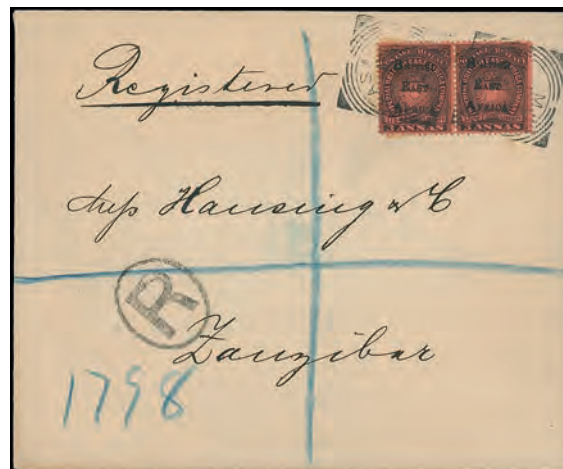 Registered
BRITISH EAST AFRICA
BRITISH EAST AFRICA
3 ANNAS
3 ANNAS
Hansing & C
R
Zanzibar
1798